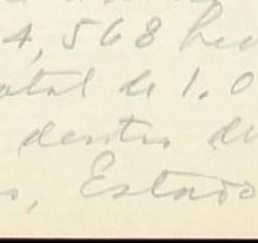 4,568 hec
total de 1.0
dentro de
s, Estado